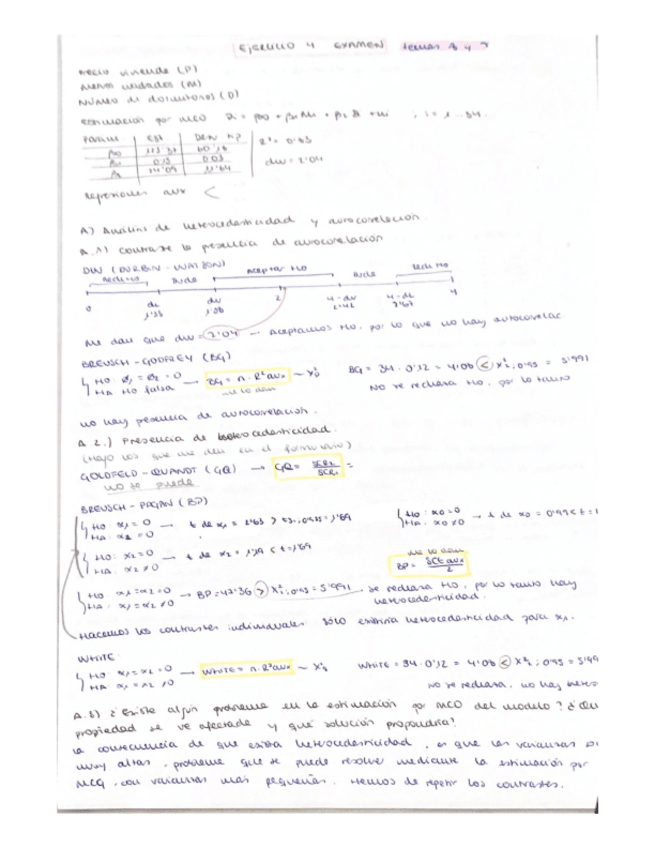 EJERCICIO 4 EXAMEN temas 8 y 9
Precio vivienda (P)
Metros cuadrados (M)
Número de dormitorios (D)
Estimación por MCO i = 1...34
Param Est Desv Tip R² = 0'83
β0
β1 0'13 0'03 dw = 2'04
β2 14'09
Regresiones aux <
A) Análisis de heterocedasticidad y autocorrelación.
A.1) Contraste la presencia de autocorrelación
DW (DURBIN-WATSON)
Rech Ho Duda Aceptar Ho Duda Rech Ho
0 dL du 2 4-du 4-dL 4
Me dan que dw = 2'04 → Aceptamos Ho, por lo que no hay autocorrelac.
BREUSCH-GODFREY (BG)
Ho: = 0 → BG = n · R²aux BG = 34 · 0'12 = 4'08 < X²₂;0'95 = 5'991
HA: Ho falsa me lo dan No se rechaza Ho, por lo tanto
no hay presencia de autocorrelación.
A 2.) Presencia de heterocedasticidad.
(Hago los que me den en el formulario)
GOLDFELD-QUANDT (GQ) → GQ =
no se puede
BREUSCH-PAGAN (BP)
Ho: α1 = 0 → t de α1 = 2'63 > Ho: α0 = 0 → t de α0 = 0'99 < t = 1
HA: α1 ≠ 0 HA: α0 ≠ 0
Ho: α2 = 0 → t de α2 = 1'19 < t = 1'69 me lo dan
HA: α2 ≠ 0 BP = SCE aux / 2
Ho: α1 = α2 = 0 → BP = > X²₂;0'95 = 5'991 se rechaza Ho, por lo tanto hay
HA: α1 = α2 ≠ 0 heterocedasticidad.
Hacemos los contrastes individuales. Sólo existiría heterocedasticidad para x1.
WHITE.
Ho: α1 = α2 = 0 → WHITE = n · R²aux White = 34 · 0'12 = 4'08 < X²₂;0'95 =
HA: α1 = α2 ≠ 0 No se rechaza, no hay
A.3) ¿Existe algún problema en la estimación por MCO del modelo? ¿Qué
propiedad se ve afectada y qué solución propondría?
La consecuencia de que exista heterocedasticidad, es que las varianzas
muy altas, problema que se puede resolver mediante la estimación por
MCG, con varianzas más pequeñas. Hemos de repetir los contrastes.